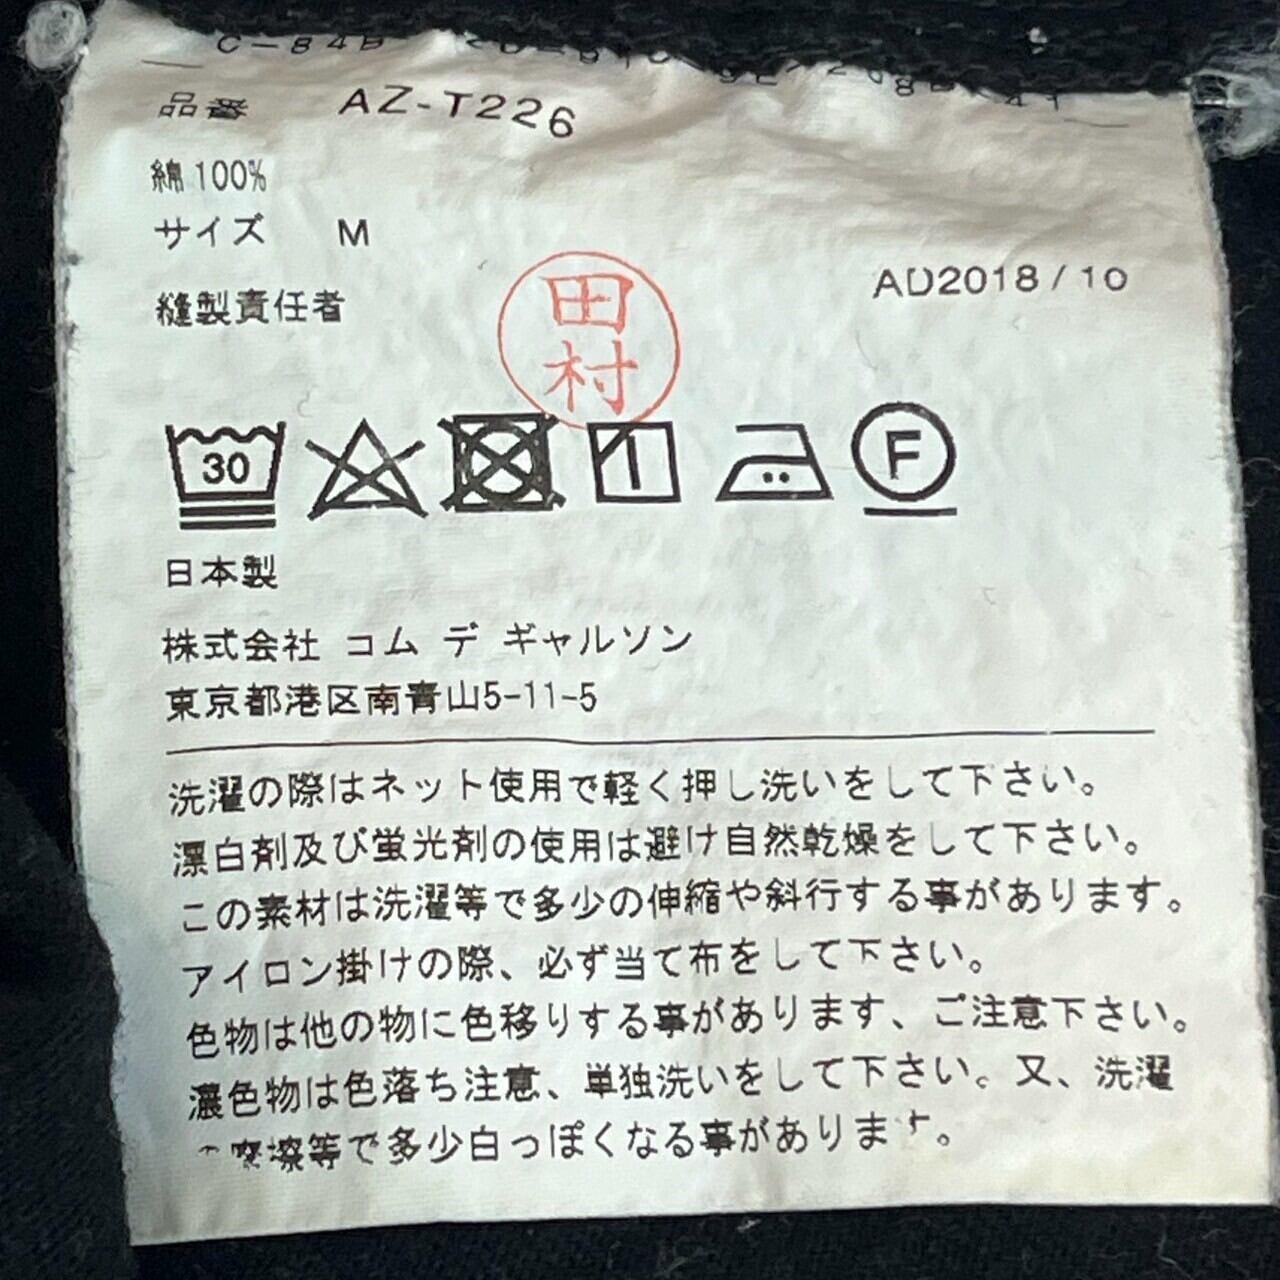 品番 AZ-T226
綿100%
サイズ M
AD2018/10
縫製責任者
田村
30
F
日本製
株式会社 コム デ ギャルソン
東京都港区南青山5-11-5
洗濯の際はネット使用で軽く押し洗いをして下さい。
漂白剤及び蛍光剤の使用は避け自然乾燥をして下さい。
この素材は洗濯等で多少の伸縮や斜行する事があります。
アイロン掛けの際、必ず当て布をして下さい。
色物は他の物に色移りする事があります、ご注意下さい。
濃色物は色落ち注意、単独洗いをして下さい。又、洗濯
摩擦等で多少白っぽくなる事があります。